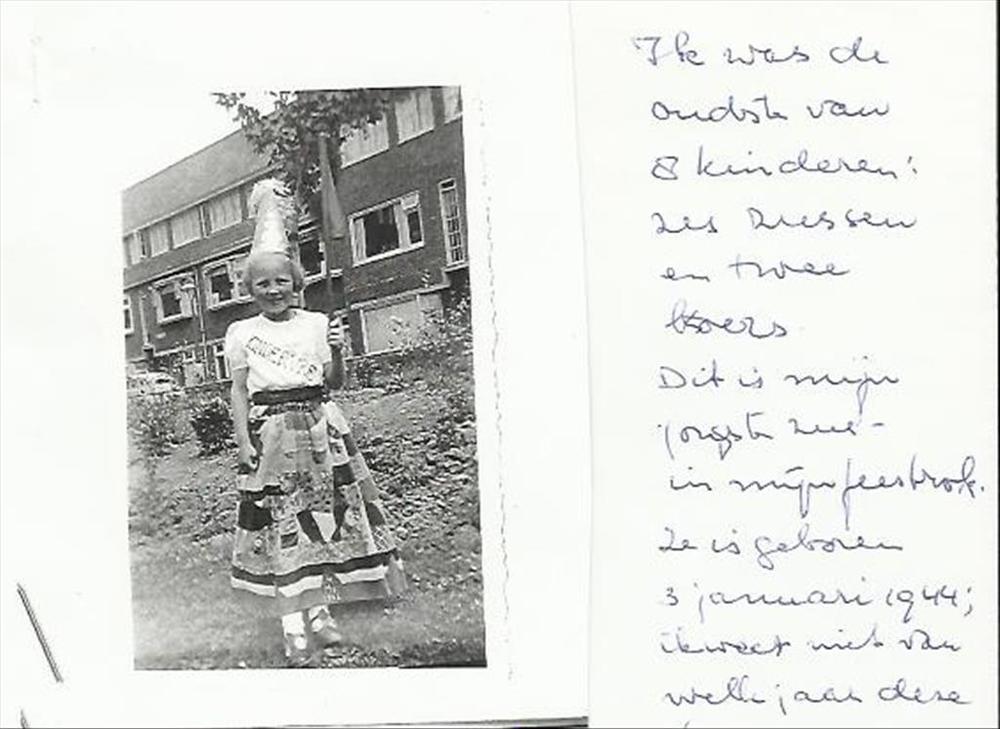 Ik was de
oudste van
8 kinderen:
zes zussen
en twee
broers
Dit is mijn
jongste zus -
in mijn feestrok.
Ze is geboren
3 januari 1944;
ik weet niet van
welk jaar deze